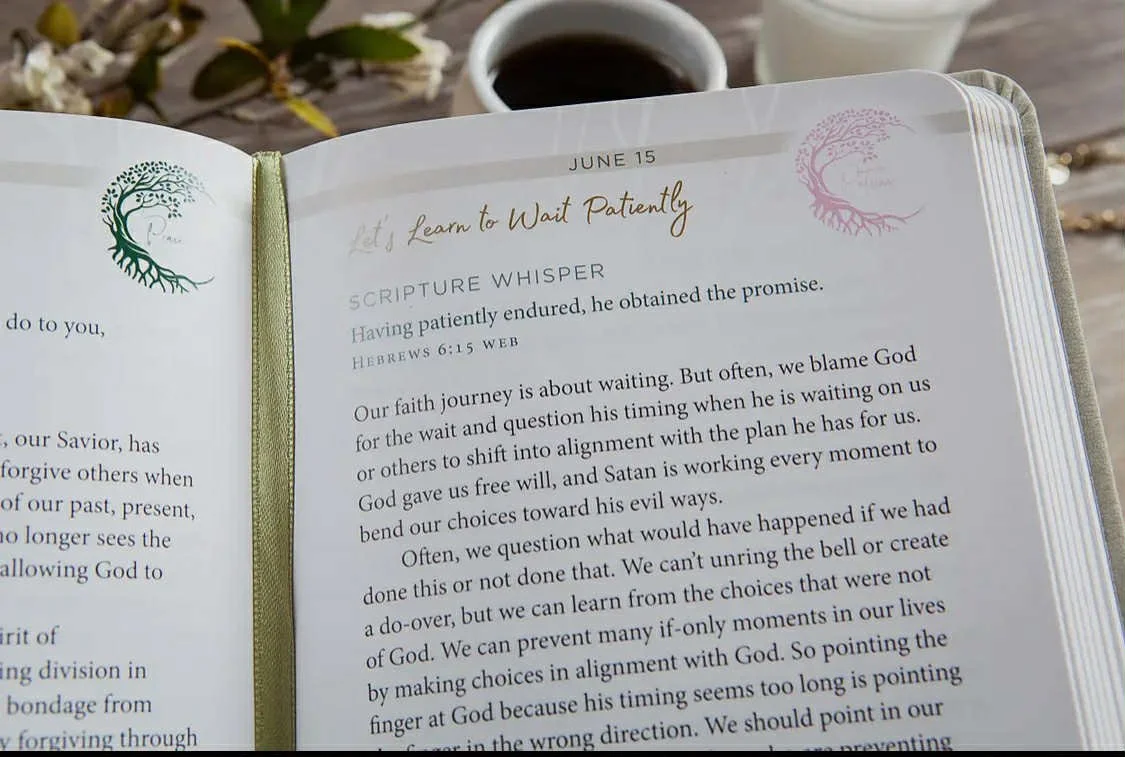 do to you,
, our Savior, has
forgive others when
of our past, present,
no longer sees the
allowing God to
irit of
ing division in
bondage from
y forgiving through
JUNE 15
Let's Learn to Wait Patiently
SCRIPTURE WHISPER
Having patiently endured, he obtained the promise.
HEBREWS 6:15 WEB
Our faith journey is about waiting. But often, we blame God
for the wait and question his timing when he is waiting on us
or others to shift into alignment with the plan he has for us.
God gave us free will, and Satan is working every moment to
bend our choices toward his evil ways.
Often, we question what would have happened if we had
done this or not done that. We can't unring the bell or create
a do-over, but we can learn from the choices that were not
of God. We can prevent many if-only moments in our lives
by making choices in alignment with God. So pointing the
finger at God because his timing seems too long is pointing
finger in the wrong direction. We should point in our
preventing